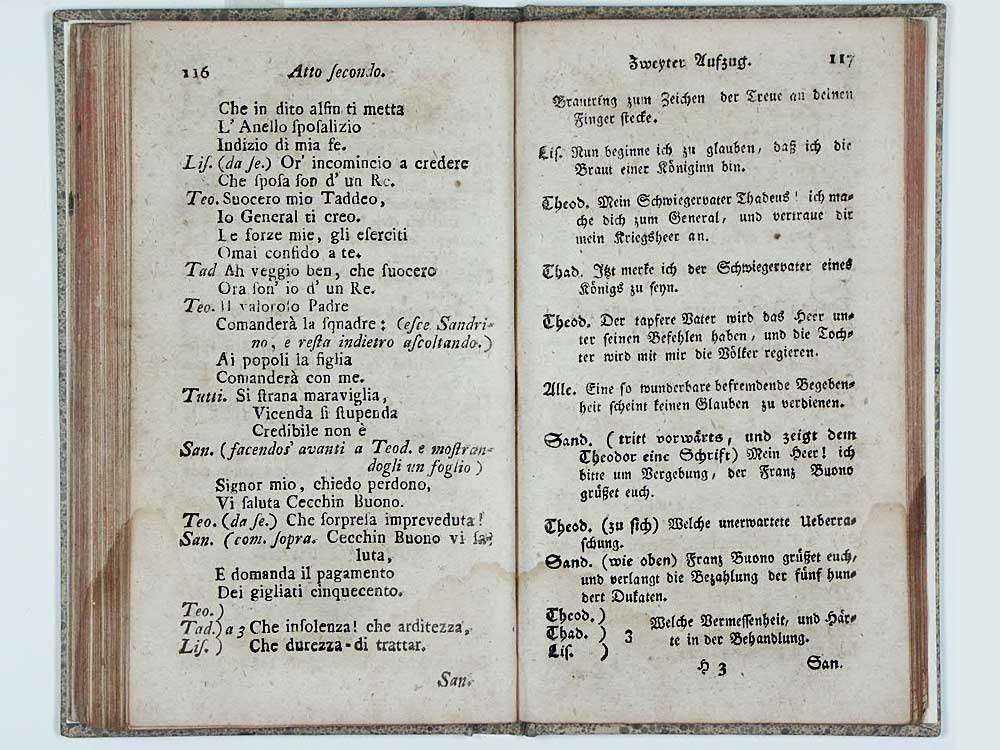 116 Atto ſecondo.
Che in dito alfin ti metta
L' Anello ſpoſalizio
Indizio di mia fe.
Liſ. (da ſe.) Or' incomincio a credere
Che ſpoſa ſon d' un Re.
Teo. Suocero mio Taddeo,
Io General ti creo.
Le forze mie, gli eſerciti
Omai confido a te.
Tad Ah veggio ben, che ſuocero
Ora ſon' io d' un Re.
Teo. Il valoroſo Padre
Comanderà la ſqnadre: (eſce Sandri-
no, e reſta indietro aſcoltando.)
Ai popoli la figlia
Comanderà con me.
Tutti. Si ſtrana maraviglia,
Vicenda ſi ſtupenda
Credibile non è
San. (facendos' avanti a Teod. e moſtran-
dogli un foglio)
Signor mio, chiedo perdono,
Vi ſaluta Cecchin Buono.
Teo. (da ſe.) Che ſorpreſa impreveduta!
San. (com. ſopra. Cecchin Buono vi ſa-
luta,
E domanda il pagamento
Dei gigliati cinquecento.
Teo.)
Tad.) a 3 Che inſolenza! che arditezza,
Liſ. ) Che durezza di trattar.
San.
Zweyter Aufzug. 117
Brautring zum Zeichen der Treue an deinen
Finger ſtecke.
Liſ. Nun beginne ich zu glauben, daß ich die
Braut einer Königinn bin.
Theod. Mein Schwiegervater Thadeus! ich ma-
che dich zum General, und vertraue dir
mein Kriegsheer an.
Thad. Itzt merke ich der Schwiegervater eines
Königs zu ſeyn.
Theod. Der tapfere Vater wird das Heer un-
ter ſeinen Befehlen haben, und die Toch-
ter wird mit mir die Völker regieren.
Alle. Eine ſo wunderbare befremdende Begeben-
heit ſcheint keinen Glauben zu verdienen.
Sand. (tritt vorwärts, und zeigt dem
Theodor eine Schrift) Mein Heer! ich
bitte um Vergebung, der Franz Buono
grüßet euch.
Theod. (zu ſich) Welche unerwartete Ueberra-
ſchung.
Sand. (wie oben) Franz Buono grüßet euch,
und verlangt die Bezahlung der fünf hun-
dert Dukaten.
Theod. )
Thad. ) 3 Welche Vermeſſenheit, und Här-
Liſ. ) te in der Behandlung.
H 3 San.